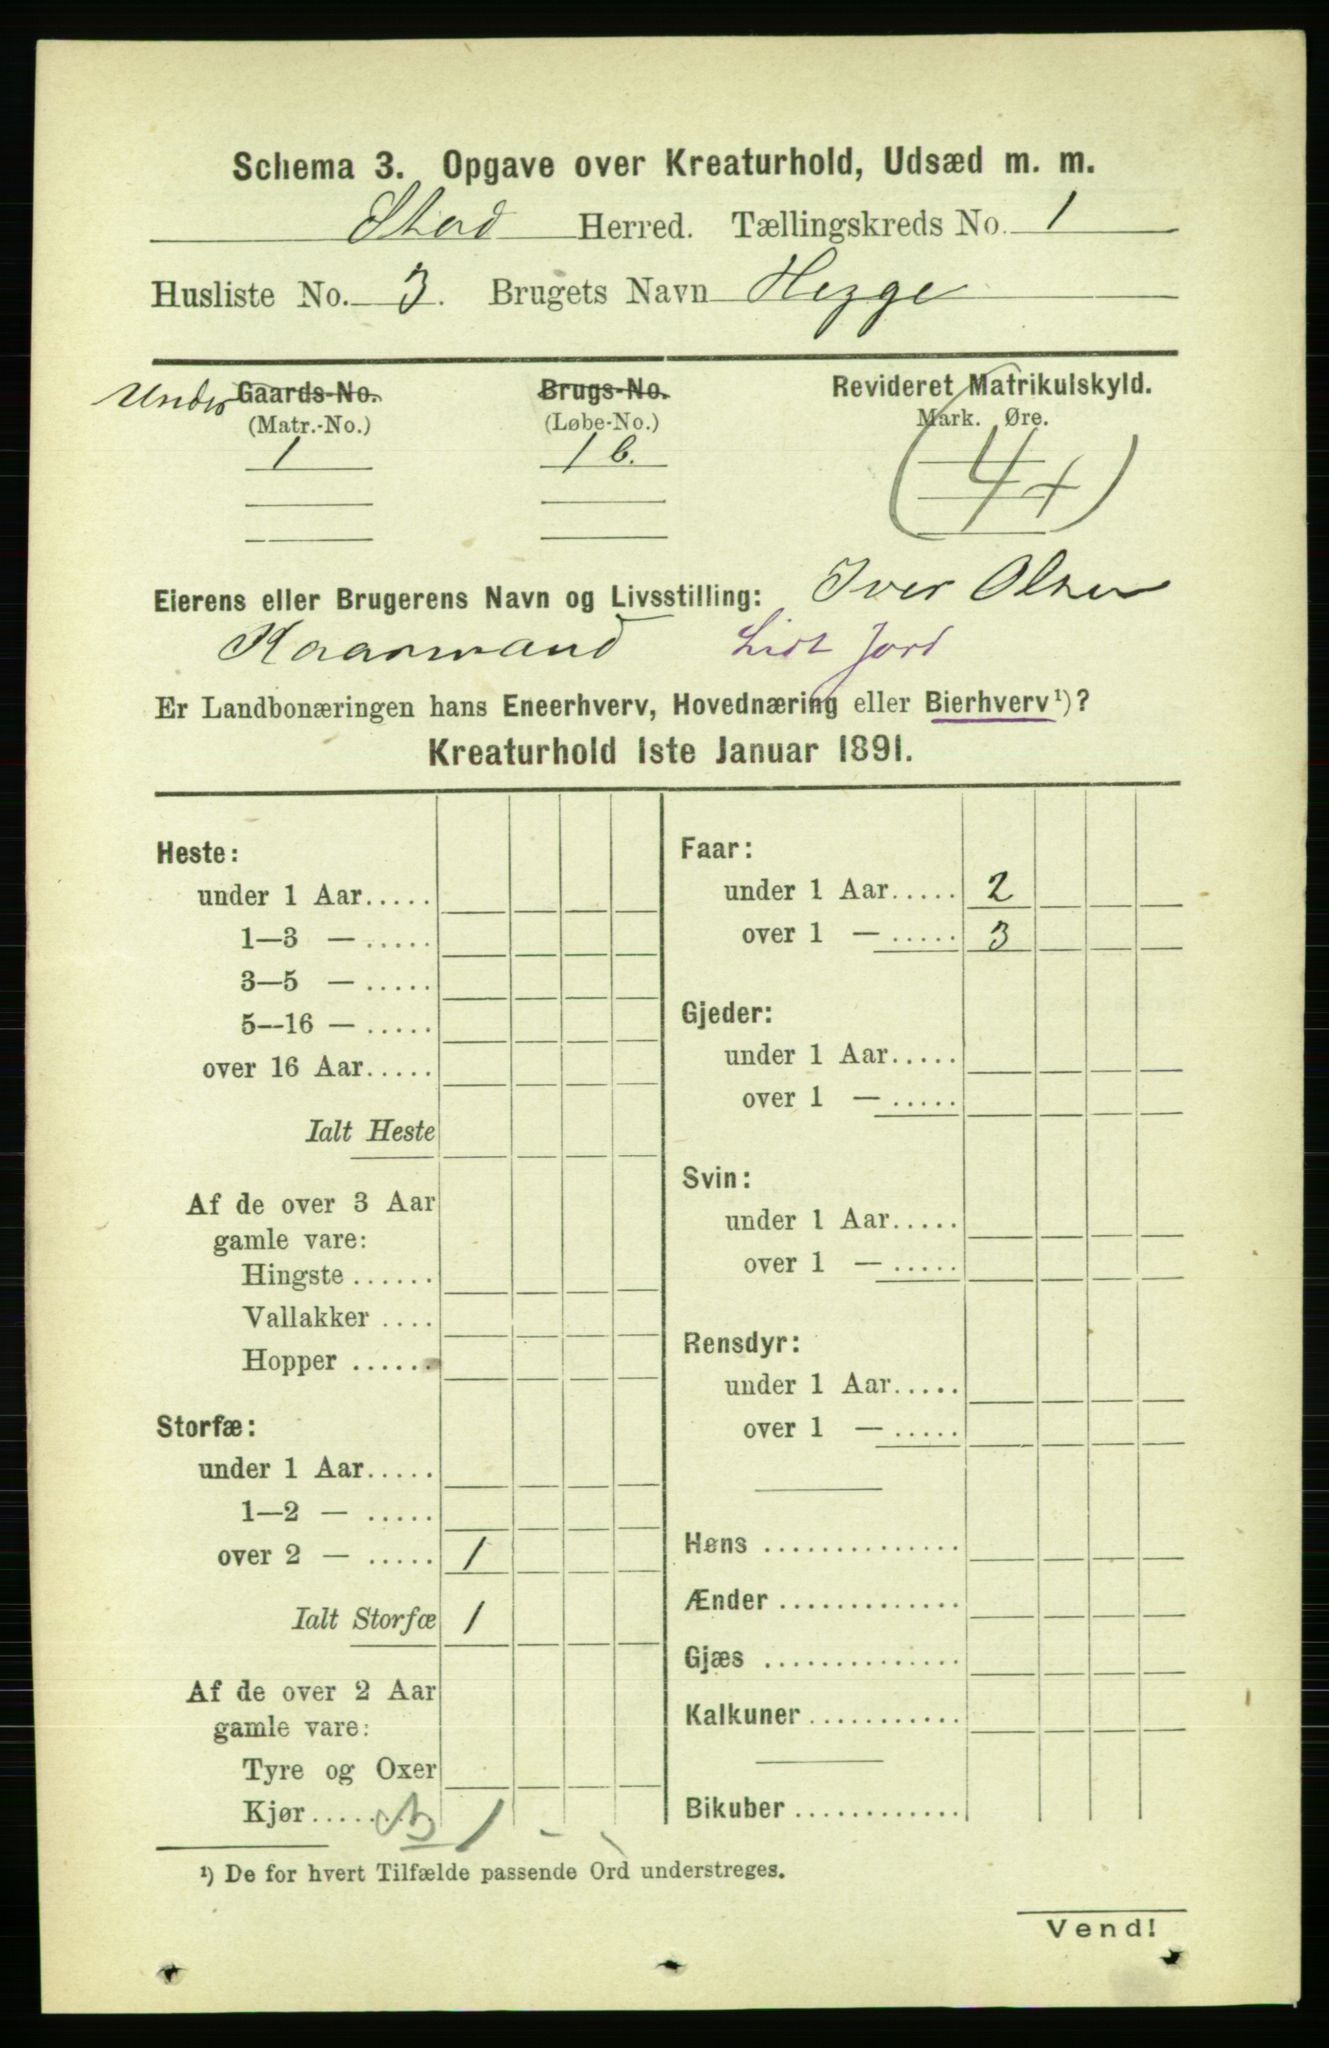 Schema 3. Opgave over Kreaturhold, Udsæd m. m.
Stod Herred. Tællingskreds No. 1
Husliste No. 3. Brugets Navn Hegge
Under Gaards-No. Brugs-No. Revideret Matrikulskyld.
(Matr.-No.) (Løbe-No.) Mark. Øre.
1 1 b. (4+)
Eierens eller Brugerens Navn og Livsstilling: Iver Olsen
Kaarmand Lidt Jord
Er Landbonæringen hans Eneerhverv, Hovednæring eller Bierhverv¹)?
Kreaturhold 1ste Januar 1891.
Heste:
under 1 Aar.....
1—3 — .....
3—5 — .....
5—16 — .....
over 16 Aar.....
Ialt Heste
Af de over 3 Aar
gamle vare:
Hingste ......
Vallakker ....
Hopper ......
Storfæ:
under 1 Aar.....
1—2 — .....
over 2 — ..... 1
Ialt Storfæ 1
Af de over 2 Aar
gamle vare:
Tyre og Oxer
Kjør...... 1
Faar:
under 1 Aar..... 2
over 1 — ..... 3
Gjeder:
under 1 Aar.....
over 1 — .....
Svin:
under 1 Aar.....
over 1 — .....
Rensdyr:
under 1 Aar.....
over 1 — .....
Høns ..............
Ænder .............
Gjæs ..............
Kalkuner ...........
Bikuber ............
¹) De for hvert Tilfælde passende Ord understreges.
Vend!